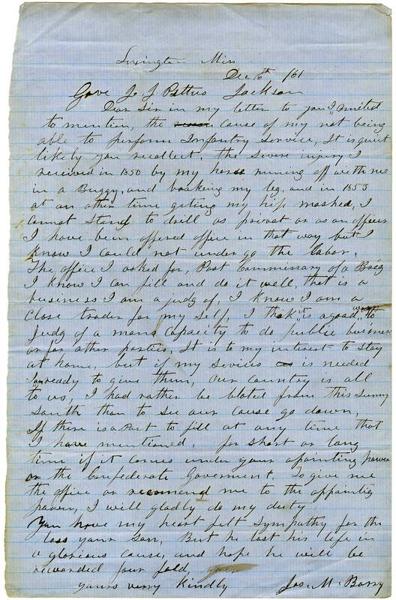 Lexington Miss
Dec 6th /61
Gove Jo J Pettus Jackson
Dear Sir in my letter to you I omited
to mention, the cause of my not being
able to perform Infantry Service, It is quit
likely you recollect, the severe injury I
received in 1850 by my horse runing off with me
in a Buggy, and braking my leg, and in 1853
at an other time geting my hip mashed, I
cannot stand to drill as privat or as an officer
I have been offered office in that way but I
know I could not under go the labor.
The office I asked for, Post Commissary of a Brig
I know I can fill and do it well, that is a
business I am a judg of, I know I am a
close trader for my self, I that is a good
Judg of a mans capacity to do public business
or for other parties, It is to my intrest to stay
at home, but if my servises is needed
I am ready to give them, Our country is all
to us, I had rather be bloted from this sunny
South than to see our cause go down,
If there is a Post to fill at any time that
I have mentioned, for short or long
time if it comes under your apointing power
or the Confederate Goverment, To give me
the office or recomend me to the appointing
power, I will gladly do my duty
You have my heart felt Sympathy for the
loss your Son, But he lost his life in
a glorious cause, and hope he will be
rewarded four fold,
yours verry Kindly Jos. M Barry